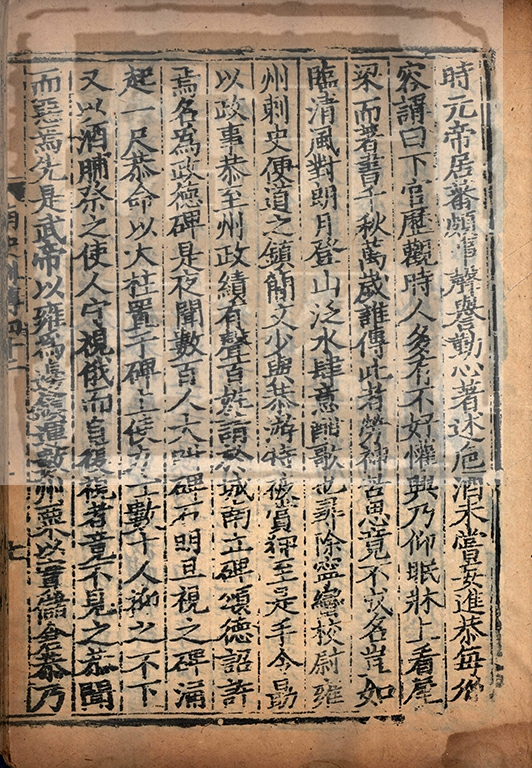 時元帝居蕃頗事聲譽勤心著述巵酒未嘗妄進恭每從
容謂曰下官歷觀時人多有不好懽興乃仰眠牀上看屋
梁而著書千秋萬歲誰傳此者勞神苦思竟不成名豈如
臨清風對朗月登山泛水肆意酣歌也尋除寧蠻校尉雍
州刺史便道之鎮簡文少與恭游特被賞狎至是手令勗
以政事恭至州政績有聲百姓請於城南立碑頌德詔許
焉名為政德碑是夜聞數百人大叫碑石明旦視之碑涌
起一尺恭命以大柱置于碑上使力士數十人抑之不下
又以酒脯祭之使人守視俄而自復視者竟不見之恭聞
而惡焉先是武帝以雍為邊鎮運數州粟以實儲倉恭乃